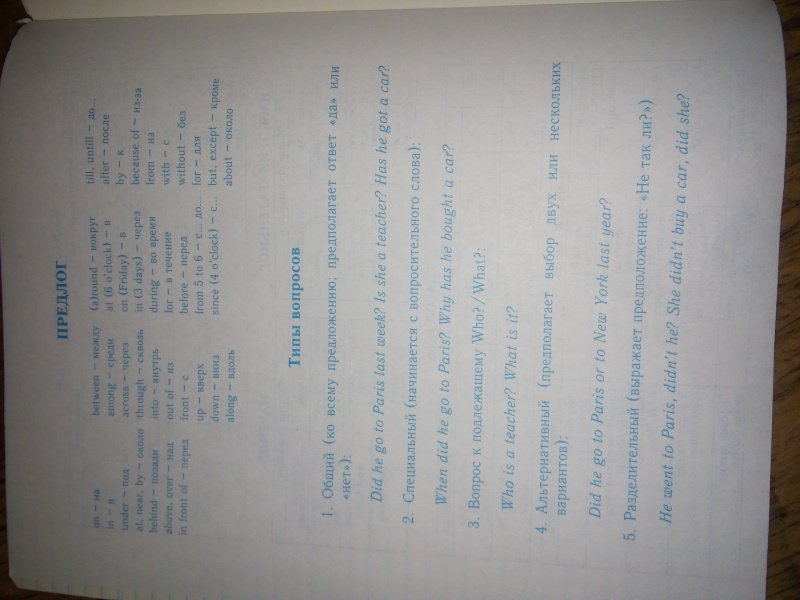 ПРЕДЛОГ
on – на
in – в
under – под
at, near, by – около
behind – позади
above, over – над
in front of – перед
between – между
among – среди
across – через
through – сквозь
into – внутрь
out of – из
front – с
up – вверх
down – вниз
along – вдоль
(a)round – вокруг
at (6 o'clock) – в
on (Friday) – в
in (3 days) – через
during – во время
for – в течение
before – перед
from 5 to 6 – с... до...
since (4 o'clock) – с...
till, untill – до...
after – после
by – к
because of – из-за
from – из
with – с
without – без
for – для
but, except – кроме
about – около
Типы вопросов
1. Общий (ко всему предложению; предполагает ответ «да» или
«нет»):
Did he go to Paris last week? Is she a teacher? Has he got a car?
2. Специальный (начинается с вопросительного слова):
When did he go to Paris? Why has he bought a car?
3. Вопрос к подлежащему Who?/What?:
Who is a teacher? What is it?
4. Альтернативный (предполагает выбор двух или нескольких
вариантов):
Did he go to Paris or to New York last year?
5. Разделительный (выражает предположение: «Не так ли?»)
He went to Paris, didn't he? She didn't buy a car, did she?